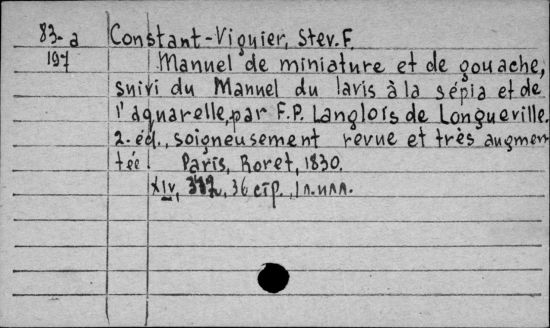 83-a Constant-Viguier, Stev. F.
197 Manuel de miniature et de gouache,
suivi du Manuel du lavis à la sépia et de
l'aquarelle, par F.P. Langlois de Longueville.
2. éd., soigneusement revue et très augmen
tée. Paris, Roret, 1830.
XIV, 36 стр., 1 л. илл.